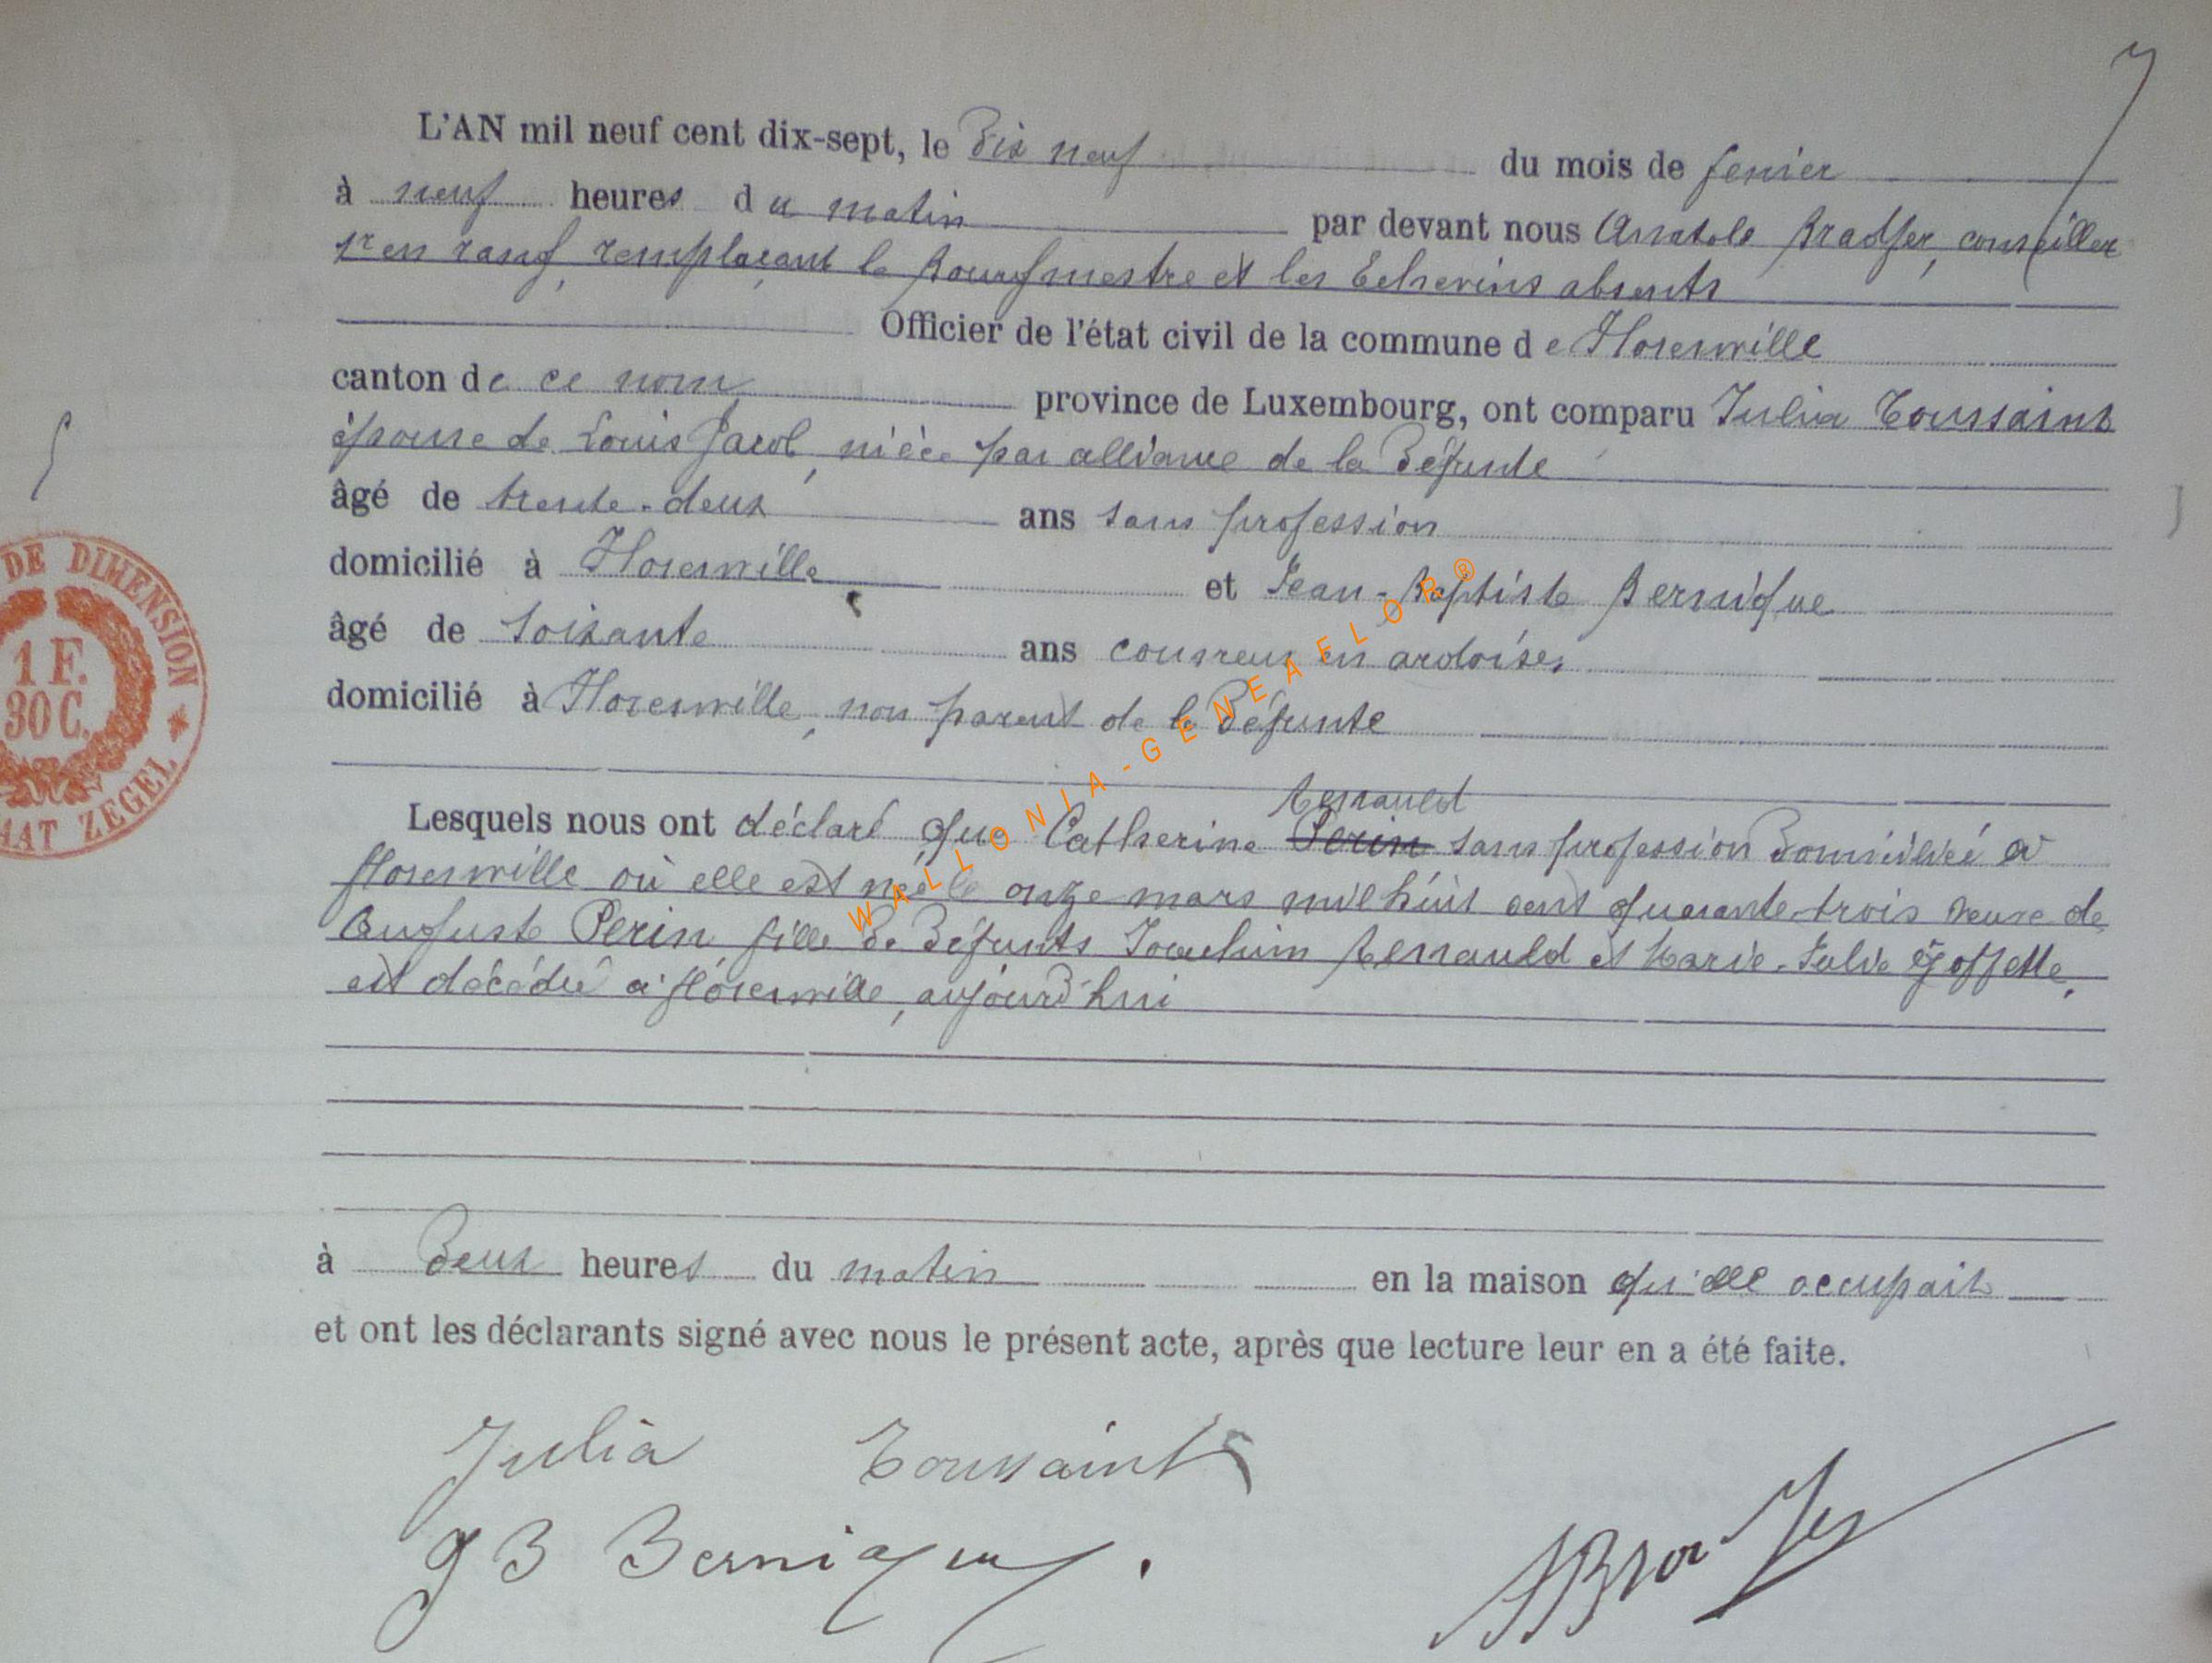 L'AN mil neuf cent dix-sept, le Dix neuf du mois de fevrier
à neuf heures du matin par devant nous Anatole Bradfer, conseiller
1er en rang, remplaçant le Bourgmestre et les Echevins absents
Officier de l'état civil de la commune de Florenville
canton de ce nom province de Luxembourg, ont comparu Julia Toussaint
épouse de Louis Jacob, nièce par alliance de la Défunte
âgé de trente-deux ans sans profession
domicilié à Florenville et Jean-Baptiste Bernique
âgé de soixante ans couvreur en ardoises
domicilié à Florenville, non parent de la Défunte
Renauld
Lesquels nous ont déclaré que Catherine Perin sans profession Domiciliée à
florenville où elle est née le onze mars mil huit cent quarante-trois veuve de
Auguste Perin fille De Défunts Joachim Renauld et Marie-Julie Goffette,
est décédée à florenville, aujourd'hui
à Deux heures du matin en la maison qu'elle occupait
et ont les déclarants signé avec nous le présent acte, après que lecture leur en a été faite.
Julia Toussaint
J B Bernique.
ABradfer
DE DIMENSION
1 F.
30 C.
ZEGEL
WALLONIA-GENEAFLOR®